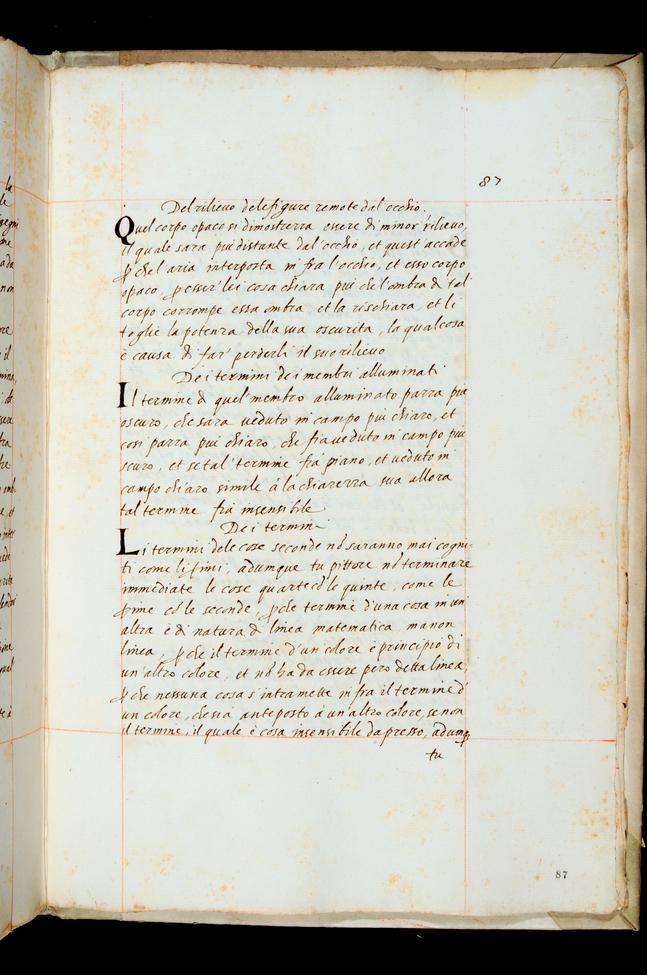 87
Del rilievo dele figure remote dal occhio.
Quel corpo opaco si dimosterra essere di minor rilievo,
il quale sara piu distante dal occhio, et quest' accade
ꝑ che l'aria interposta in fra l'occhio, et esso corpo
opaco, ꝑ esser' lei cosa chiara piu che l'ombra di tal'
corpo corrompe essa ombra, et la rischiara, et li
toglie la potenza della sua oscurita, la qual cosa
è causa di far' perderli il suo rilievo
De i termini de i membri alluminati
Il termine di quel' membro alluminato parra piu
oscuro, che sara veduto in campo piu chiaro, et
cosi parra piu chiaro, che fia veduto in campo piu
scuro, et se tal' termine fia piano, et veduto in
campo chiaro simile à la chiarezza sua allora
tal termine fia insensibile
De i termini
Li termini dele cose seconde nō saranno mai cogni-
ti come li primi, adunque tu pittore nō terminare
immediate le cose quarte cō le quinte, come le
ꝑime cō le seconde, ꝑ che termine d'una cosa in un'
altra è di natura di linea matematica, ma non
linea, ꝑ che il termine d'un colore è principio di
un'altro colore, et nō ha da essere pero detta linea,
ꝑ che nessuna cosa s'intramette in fra il termine d'
un colore, che sia anteposto à un'altro colore, se non
il termine, il quale è cosa insensibile da presso, adunq̄
tu
87